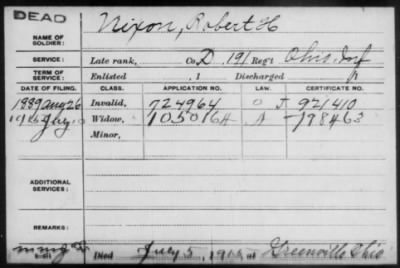 DEAD
NAME OF SOLDIER: Nixon, Robert H
SERVICE: Late rank, Co. D, 191 Reg't Ohio Inf
TERM OF SERVICE: Enlisted , 1 Discharged , 1
DATE OF FILING. CLASS. APPLICATION NO. LAW. CERTIFICATE NO.
1889 Aug 26 Invalid, 724964 J 921410
July Widow, 1050164 A
Minor,
ADDITIONAL SERVICES:
REMARKS:
Died July 5, at Greenville Ohio